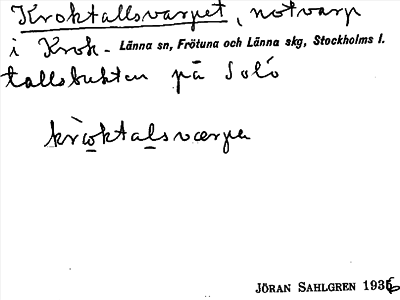 Kroktallsvarpet, notvarp
i Krok- Länna sn, Frötuna och Länna skg, Stockholms l.
tallsbukten på Solö
kròktalsværpə
JÖRAN SAHLGREN 1936